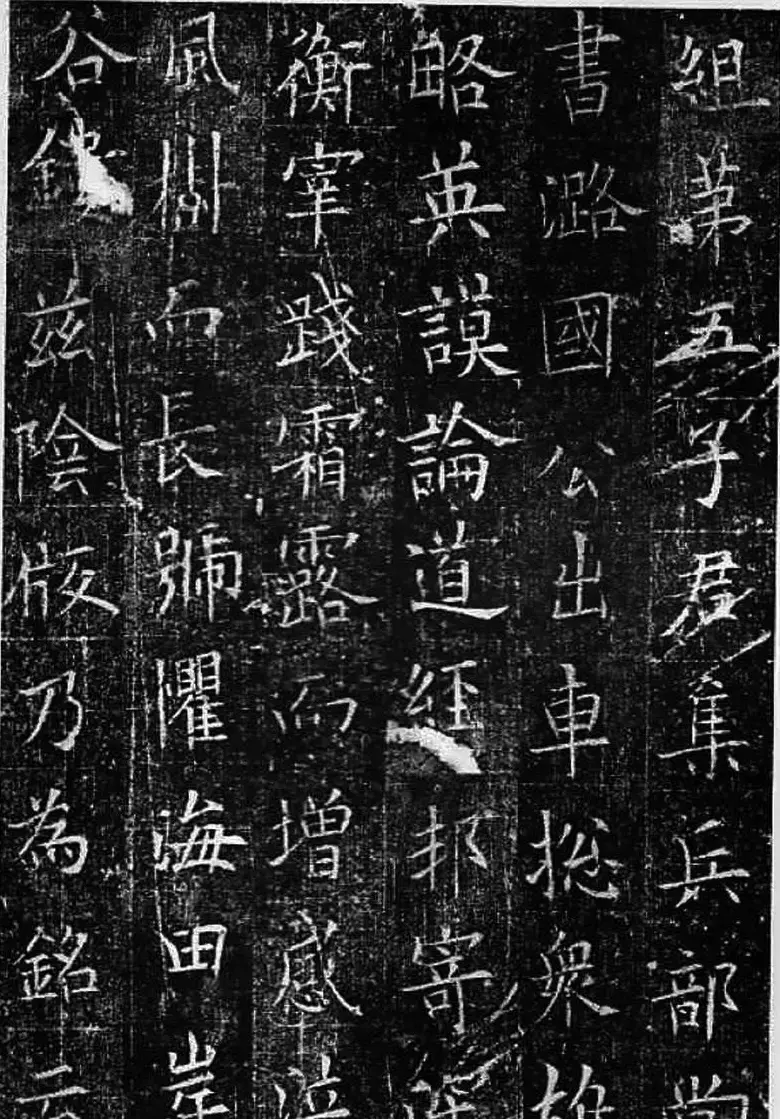 組第五子君集兵部尚
書潞國公出車捴衆
略英謨論道經邦寄
衡宰踐霜露而增感泣
風樹而長號懼海田岸
谷兹陰乃為銘云